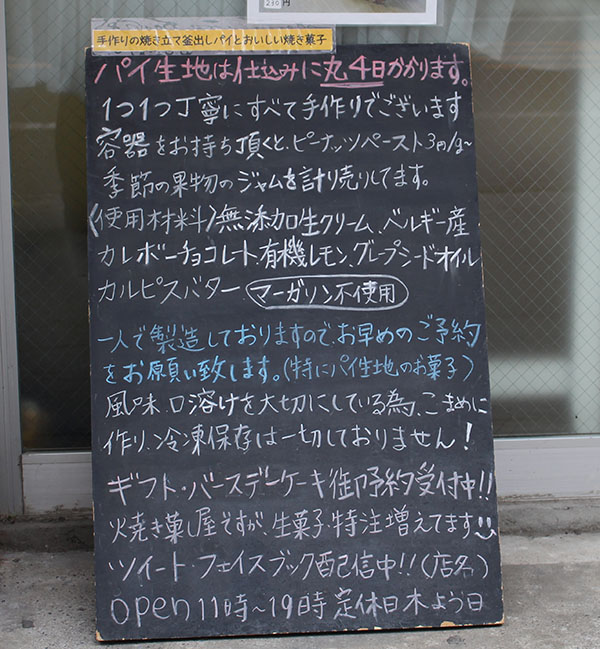 230円
手作りの焼き立マ釜出しパイとおいしい焼き菓子
パイ生地は仕込みに丸4日かかります。
1つ1つ丁寧にすべて手作りでございます
容器をお持ち頂くと、ピーナッツペースト3円/g~
季節の果物のジャムを計り売りしてます。
(使用材料)無添加生クリーム、ベルギー産
カレボーチョコレート、有機レモン、グレープシードオイル
カルピスバター マーガリン不使用
一人で製造しておりますので、お早めのご予約
をお願い致します。(特にパイ生地のお菓子)
風味、口溶けを大切にしている為、こまめに
作り、冷凍保存は一切しておりません!
ギフト・バースデーケーキ御予約受付中!!
火焼き菓し屋ですが、生菓子・特注増えてます
ツイート・フェイスブック配信中!!(店名)
open 11時~19時 定休日木よう日